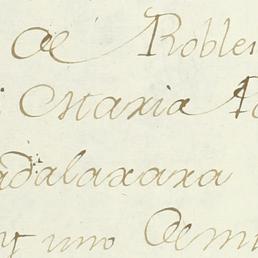 de Robles
Maria
adalaxara
y uno de mi